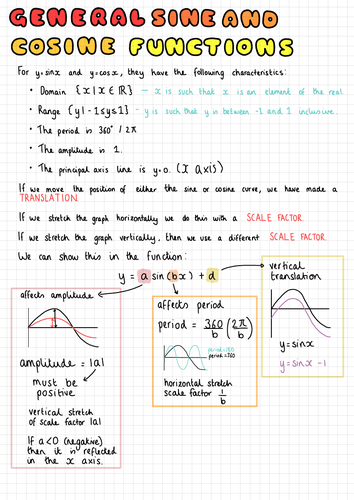 GENERAL SINE AND
COSINE FUNCTIONS
For y=sinx and y=cosx, they have the following characteristics:
• Domain {x|x ∈ ℝ} — x is such that x is an element of the real.
• Range {y|-1≤y≤1} - y is such that y in between -1 and 1 inclusive.
• The period is 360° / 2π
• The amplitude is 1.
• The principal axis line is y=0. (x axis)
If we move the position of either the sine or cosine curve, we have made a
TRANSLATION.
If we stretch the graph horizontally we do this with a SCALE FACTOR.
If we stretch the graph vertically, then we use a different SCALE FACTOR.
We can show this in the function:
y = a sin(bx) + d
affects amplitude
amplitude = |a|
must be
positive
vertical stretch
of scale factor |a|
If a<0 (negative)
then it is reflected
in the x axis.
affects period
period = 360/b (2π/b)
period=180
period=360
horizontal stretch
scale factor 1/b
vertical
translation
y=sinx
y=sinx -1